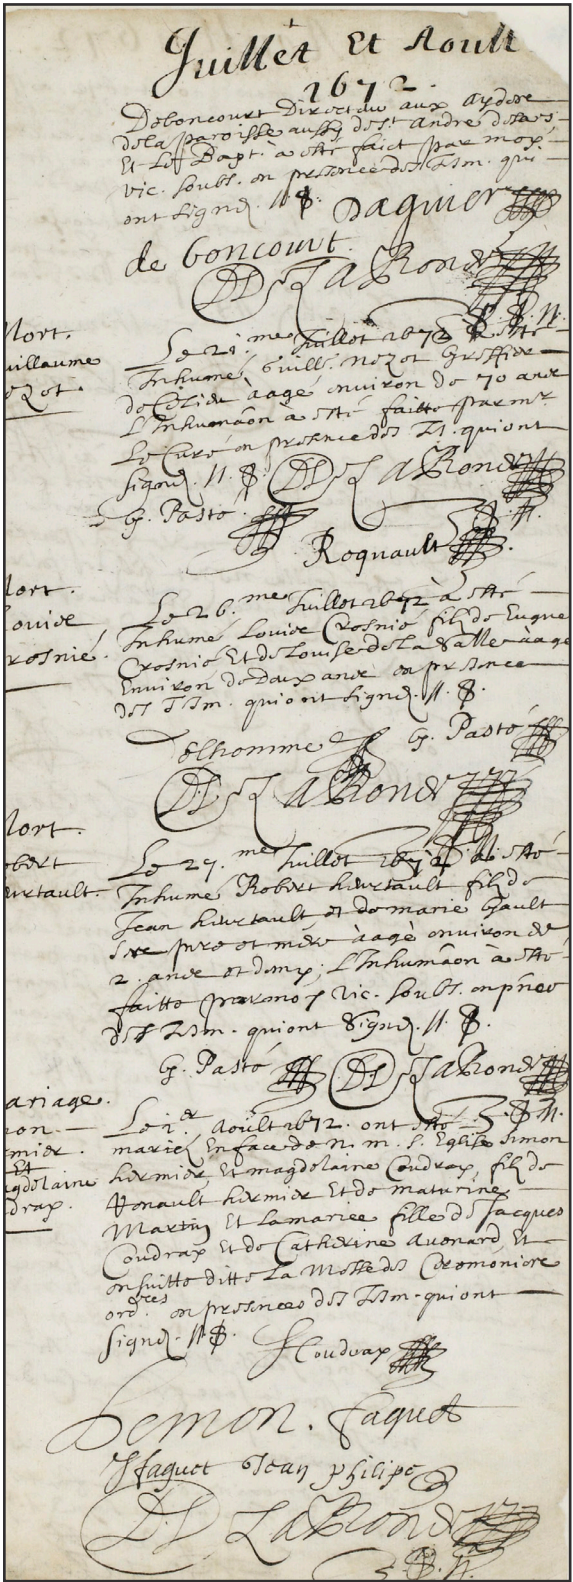 Juillet Et Aoust
1672.
Deboncourt Directeur aux Aydes
de la paroisse aussy de St. André
Et Led. Bapt. à esté faict par moy
vic. soubs. en presence des Tsm. qui
ont signé. //.
Daguier
de Goncourt.
La Ronde
Mort.
uillaume
ezot.
Le 21.me Juillet 1672 à esté
Inhumé Guill. Nezot Greffier
de aagé environ de 70 ans
L'Inhumãon à esté faitte par mr.
Le Curé en presence des Ts. qui ont
signé. //.
La Ronde
G. Pasté
Roquault
Mort.
Louise
rosnié.
Le 26.me Juillet 1672 à esté
Inhumé Louise Crosnié fille de
Crosnié Et de Louise de la Salle aage
Environ de Deux ans en presence
des Tsm. qui ont signé. //.
Delhomme G. Pasté
La Ronde
Mort.
obert
eurtault.
Le 27.me Juillet 1672 à esté
Inhumé Robert heurtault filz de
Jean heurtault et de marie Gault
ses pere et mere aagé environ de
2. ans et demy; L'Inhumãon à esté
faitte par moy vic. soubs. en pñce
des Tsm. qui ont signé. //.
G. Pasté La Ronde
ariage.
mon
rmier.
Et
agdelaine
drax.
Le 1.er Aoust 1672. ont esté
mariez En face de n. m. S. Eglise Simon
hermier Et magdelaine Coudrax, filz de
Renault hermier Et de maturine
Martin Et La mariee fille de Jacques
Coudrax Et de Catherine Auenard, Et
ensuitte ditte La Messe des Ceremonies
ord.res en presences des Tsm. qui ont
signé. //.
Coudrax
Semon. faguet
faguet Jean philipe
La Ronde